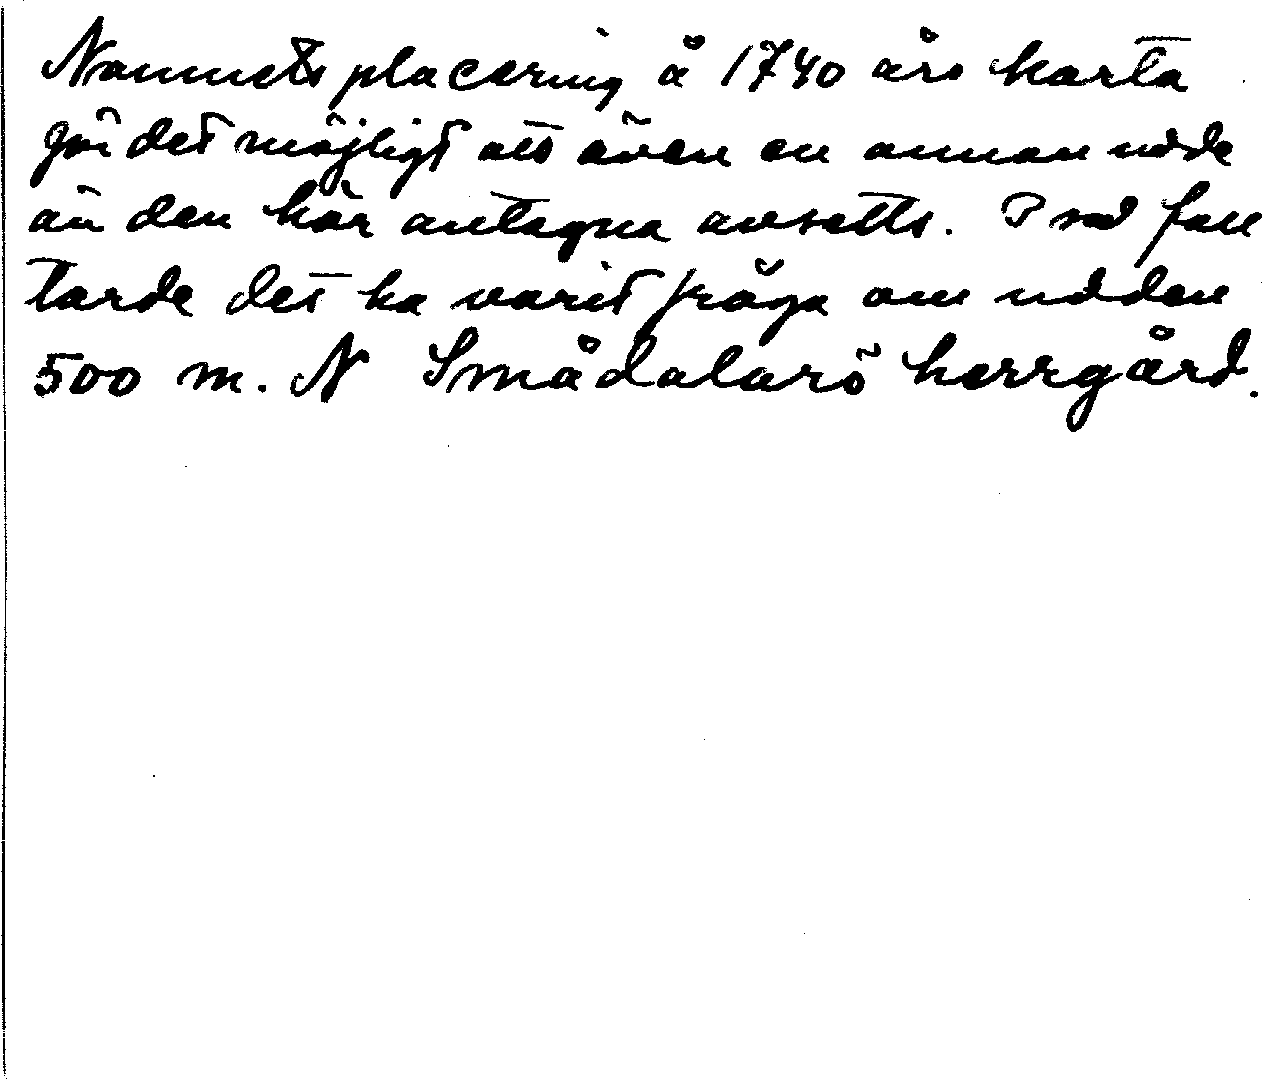 Namnets placering å 1740 års karta
gör det möjligt att även en annan udde
än den här antagna avsetts. I så fall
torde det ha varit fråga om udden
500 m. N Smådalarö herrgård.